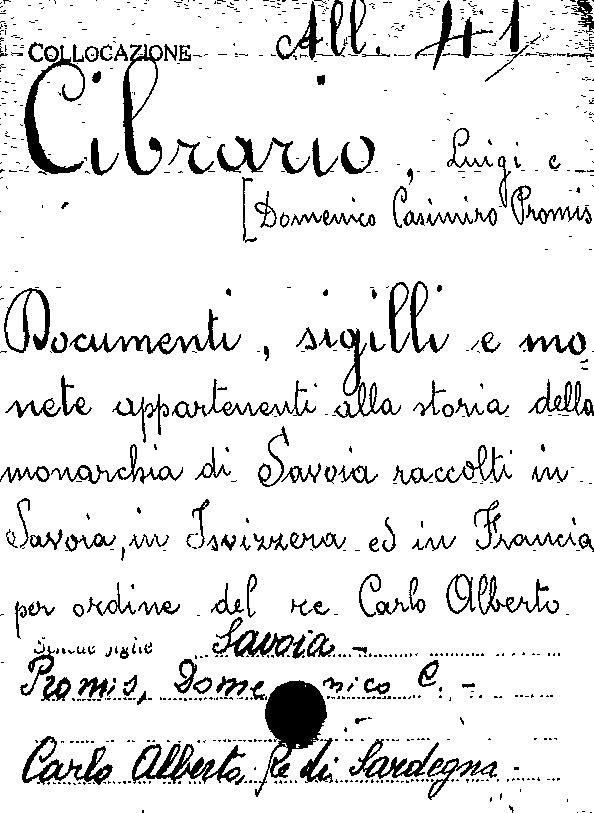 COLLOCAZIONE All. 41
Cibrario, Luigi e
[Domenico Casimiro Promis
Documenti, sigilli e mo=
nete appartenenti alla storia della
monarchia di Savoia raccolti in
Savoia, in Isvizzera ed in Francia
per ordine del re Carlo Alberto
Savoia -
Promis, Domenico C. -
Carlo Alberto, Re di Sardegna -